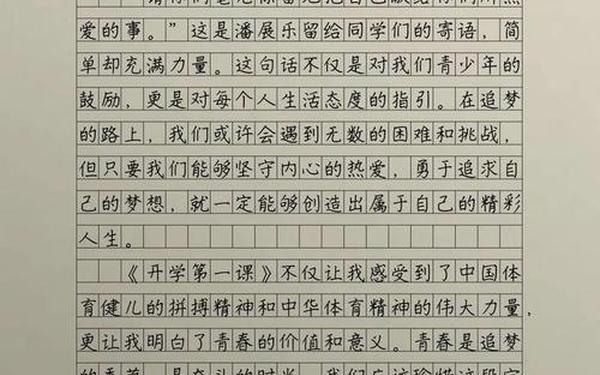 爱的事。”这是潘展乐留给同学们的寄语，简
单却充满力量。这句话不仅是对我们青少年的
鼓励，更是对每个人生活态度的指引。在追梦
的路上，我们或许会遇到无数的困难和挑战，
但只要我们能够坚守内心的热爱，勇于追求自
己的梦想，就一定能够创造出属于自己的精彩
人生。
《开学第一课》不仅让我感受到了中国体
育健儿的拼搏精神和中华体育精神的伟大力量，
更让我明白了青春的价值和意义。青春是追梦